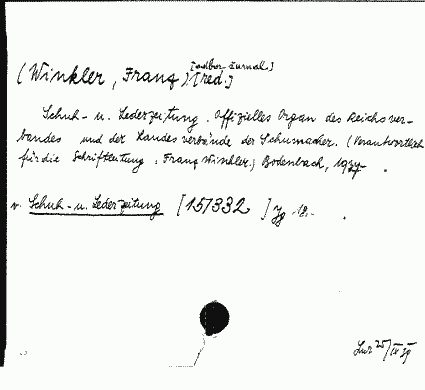 [odbor. žurnal.]
(Winkler, Franz) [red.]
Schuh- u. Lederzeitung. Offizielles Organ des Reichsver-
bandes und der Landesverbände der Schuhmacher. (Verantwortlich
für die Schriftleitung: Franz Winkler.) Bodenbach, 1937- .
v. Schuh- u. Lederzeitung [15/332] Jg. 18.- .
25/IV 39